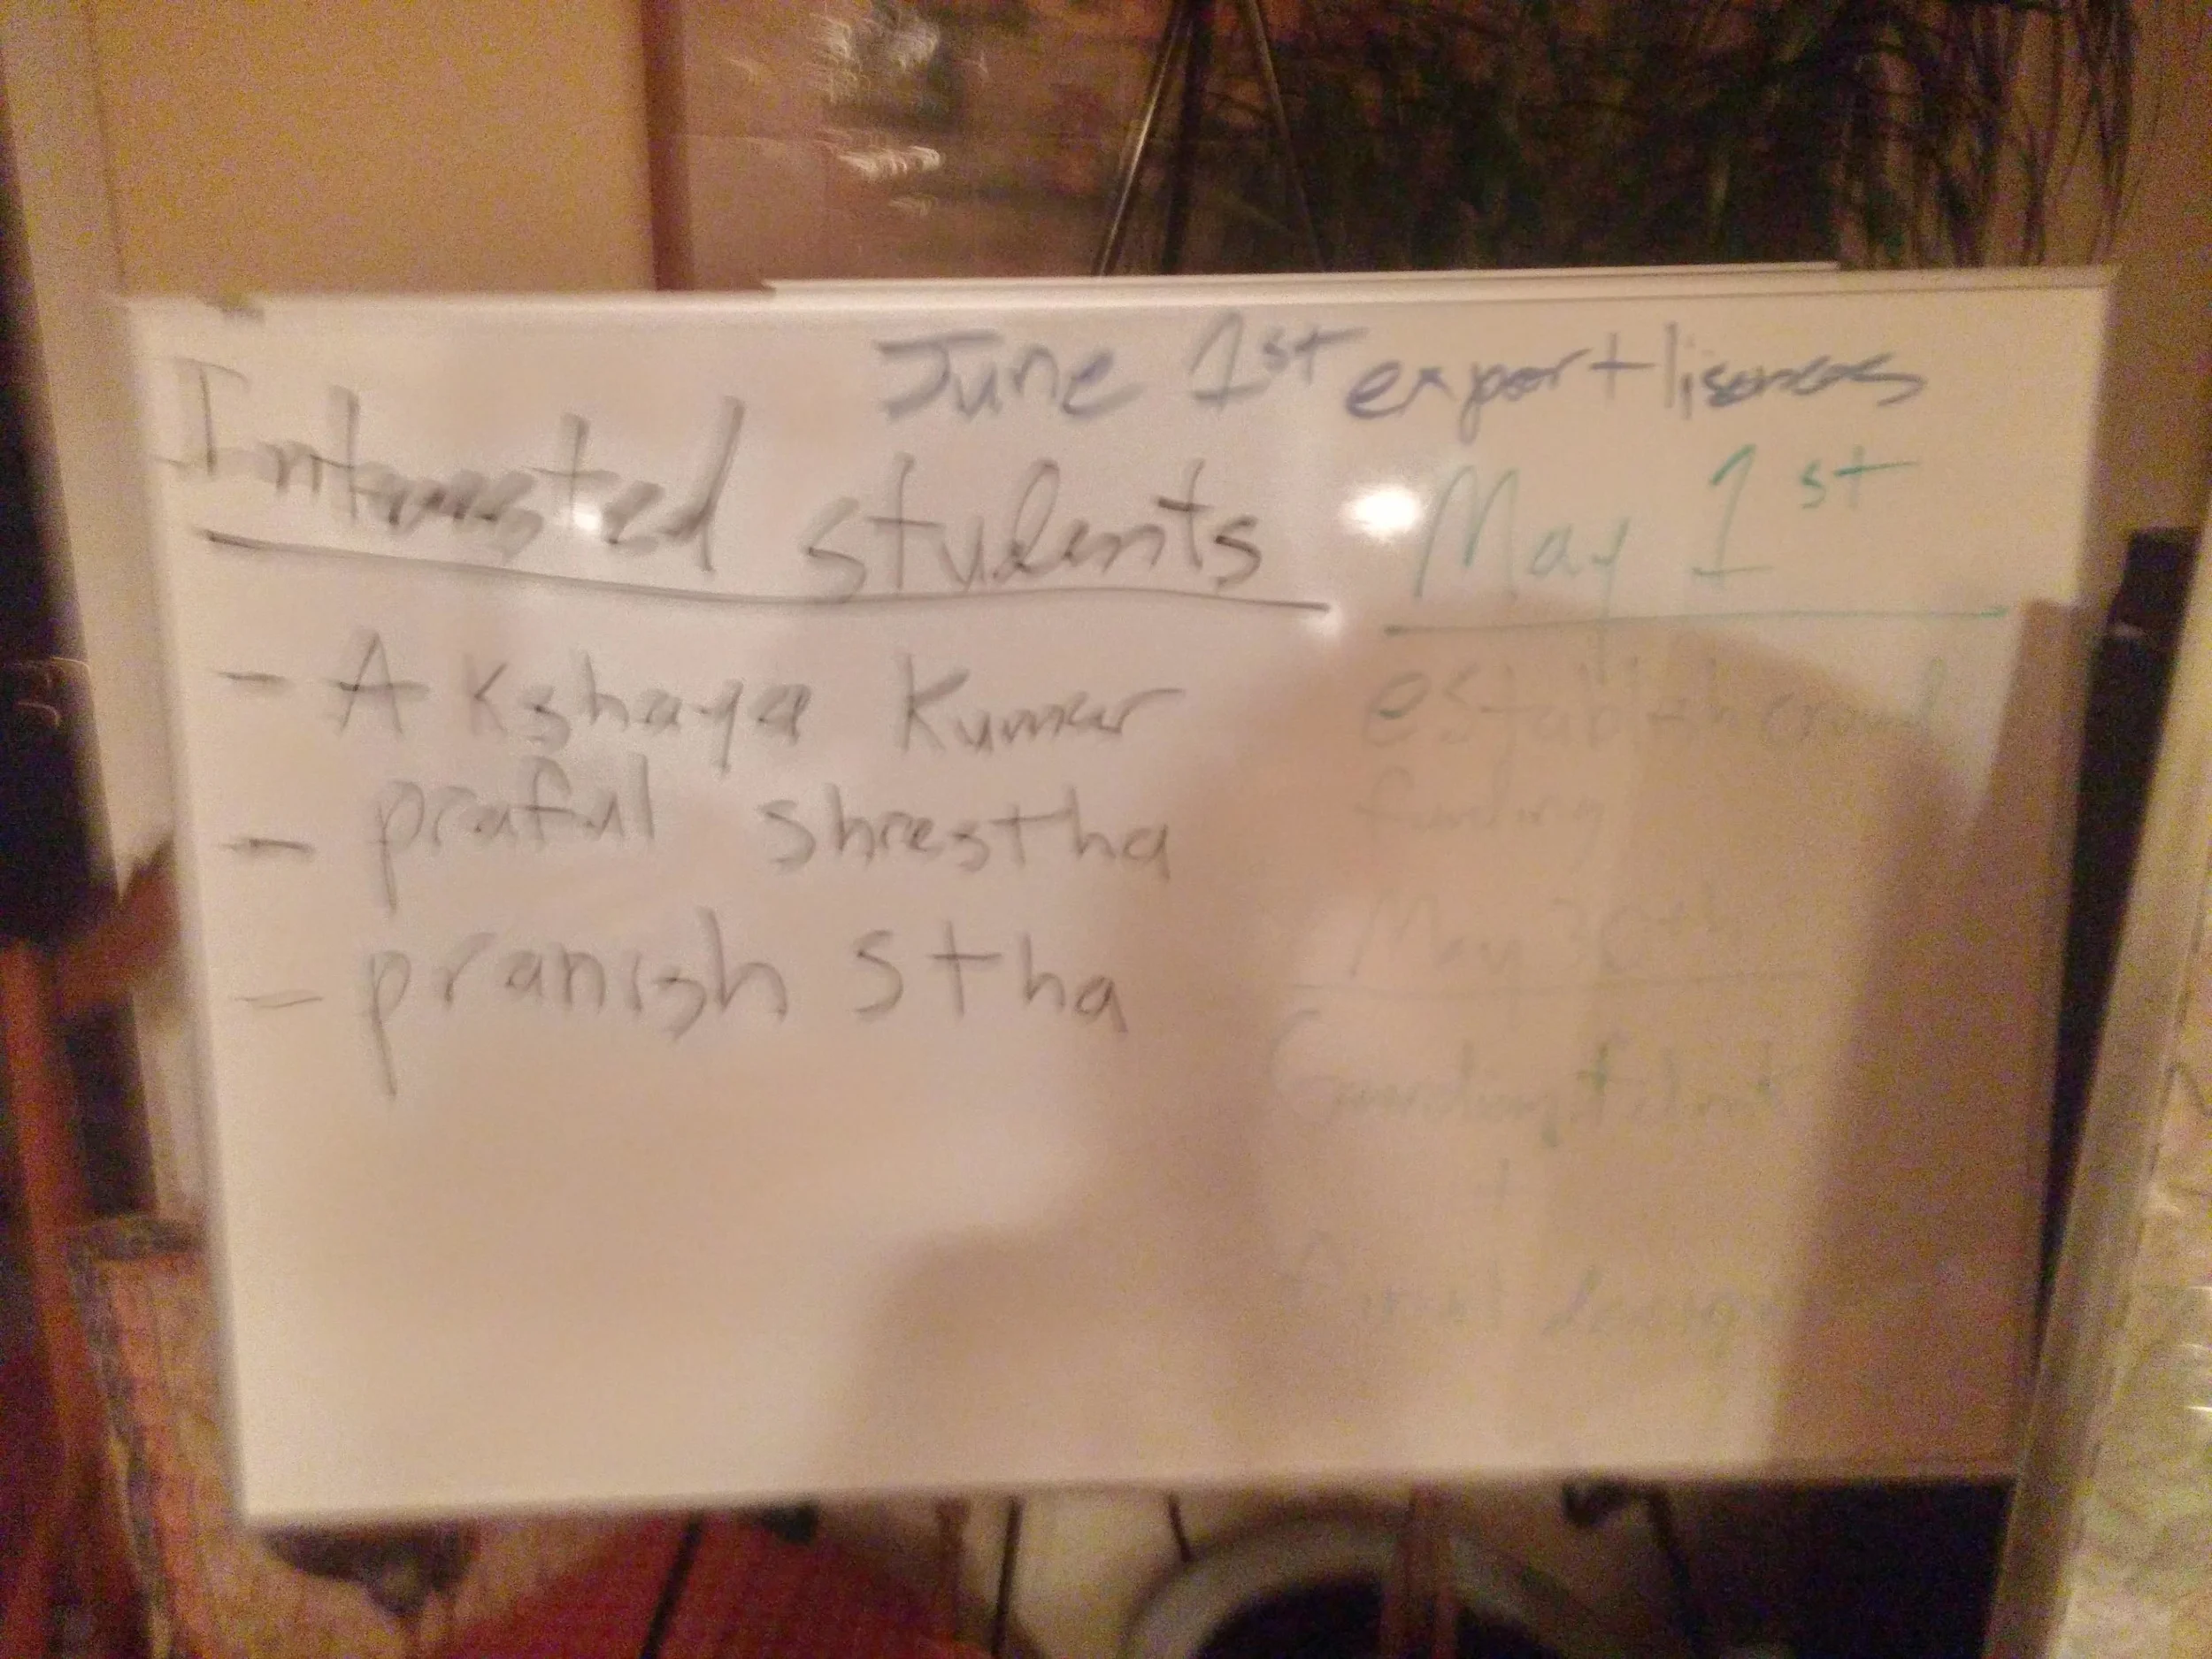 June 1st export lisences
Interested students
- Akshaya Kumar
- praful shrestha
- pranish stha
May 1st
establish crowd
funding
May 30th
design